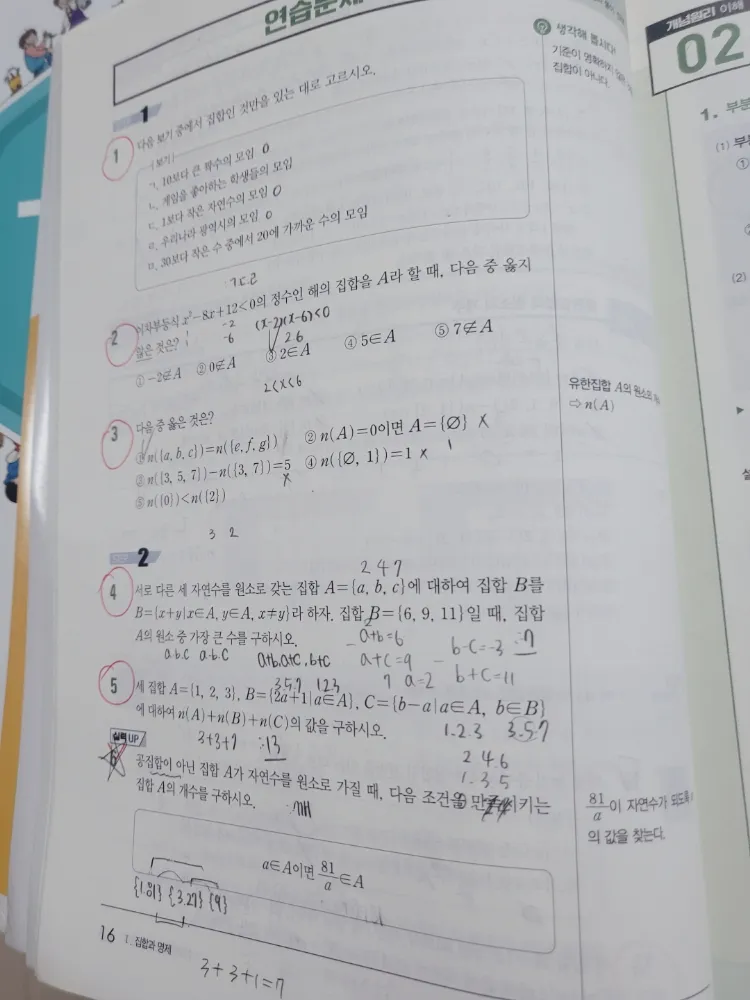 연습문제
생각해 봅시다!
기준이 명확하지
집합이 아니다.
개념원리 이해
02
1
1 다음 보기 중에서 집합인 것만을 있는 대로 고르시오.
보기
ㄱ. 10보다 큰 짝수의 모임 O
ㄴ. 게임을 좋아하는 학생들의 모임
ㄷ. 1보다 작은 자연수의 모임 O
ㄹ. 우리나라 광역시의 모임 O
ㅁ. 30보다 작은 수 중에서 20에 가까운 수의 모임
ㄱㄷㄹ
2 이차부등식 x²-8x+12<0의 정수인 해의 집합을 A라 할 때, 다음 중 옳지
않은 것은?
-2
-6
(x-2)(x-6)<0
2 6
① -2∉A ② 0∉A ③ 2∈A ④ 5∈A ⑤ 7∉A
2<x<6
유한집합 A의 원소의
⇨ n(A)
3 다음 중 옳은 것은?
① n({a, b, c})=n({e, f, g}) ② n(A)=0이면 A={∅} x
③ n({3, 5, 7})-n({3, 7})=5 x ④ n({∅, 1})=1 x
⑤ n({0})<n({2})
3 2
2
2 4 7
4 서로 다른 세 자연수를 원소로 갖는 집합 A={a, b, c}에 대하여 집합 B를
B={x+y|x∈A, y∈A, x≠y}라 하자. 집합 B={6, 9, 11}일 때, 집합
A의 원소 중 가장 큰 수를 구하시오.
a+b=6
b-c=-3
∴7
a.b.c a.b.c a+b, a+c, b+c
a+c=9
b+c=11
7 a=2
3.5.7 1 2 3
5 세 집합 A={1, 2, 3}, B={2a+1|a∈A}, C={b-a|a∈A, b∈B}
에 대하여 n(A)+n(B)+n(C)의 값을 구하시오.
1.2.3 3.5.7
3+3+7 ∴13
2 4 6
1.3.5
실력UP
6 공집합이 아닌 집합 A가 자연수를 원소로 가질 때, 다음 조건을 만족시키는
집합 A의 개수를 구하시오.
a∈A이면 81/a∈A
81/a이 자연수가 되도록
의 값을 찾는다.
{1.81} {3.27} {9}
16 Ⅰ. 집합과 명제
3+3+1=7
1. 부분
(1) 부분
①
(2)